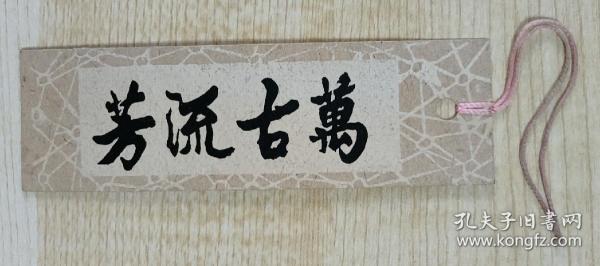 萬古流芳
孔夫子旧書网
www.kongfz.com